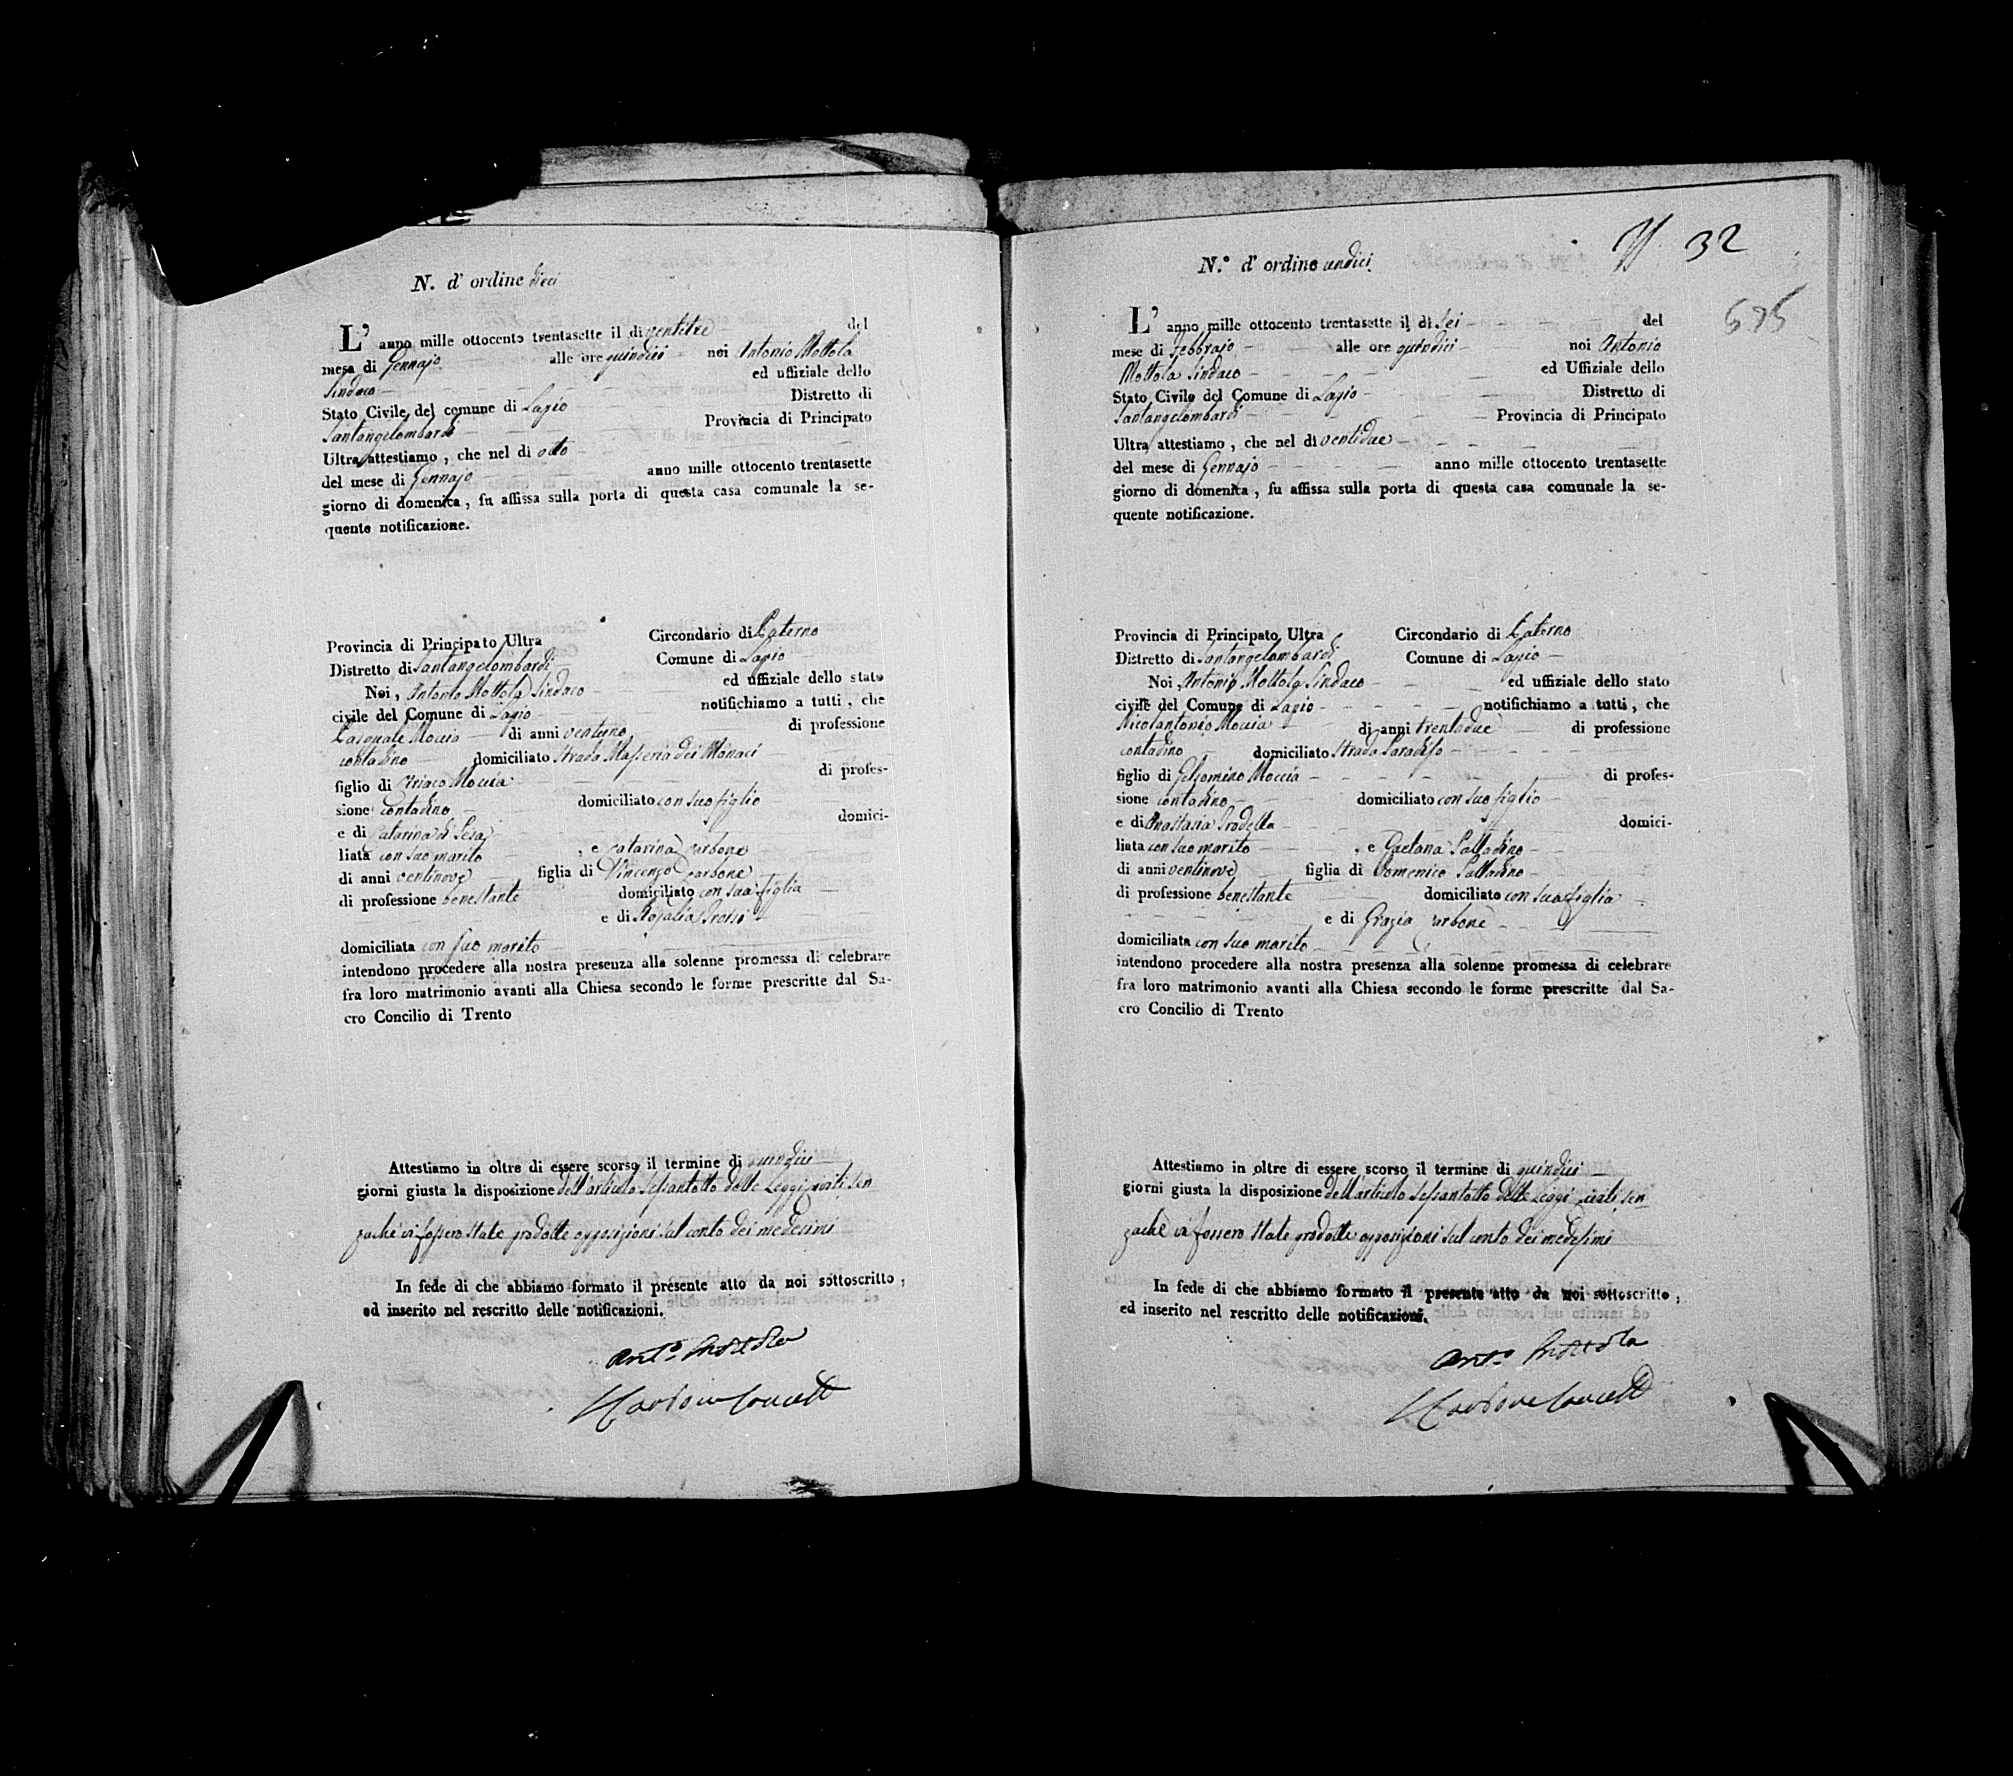 N. d' ordine dieci
L' anno mille ottocento trentasette il dì ventitre del
mese di Gennajo alle ore quindici noi Antonio Mottola
Sindaco ed uffiziale dello
Stato Civile del comune di Lapio Distretto di
Santangelombardi Provincia di Principato
Ultra attestiamo, che nel dì otto
del mese di Gennajo anno mille ottocento trentasette
giorno di domenica, fu affissa sulla porta di questa casa comunale la se-
quente notificazione.
Provincia di Principato Ultra Circondario di Paterno
Distretto di Santangelombardi Comune di Lapio
Noi, Antonio Mottola Sindaco ed uffiziale dello stato
civile del Comune di Lapio notifichiamo a tutti, che
Pasquale Moccia di anni ventuno di professione
contadino domiciliato Strada Masseria dei Monaci
figlio di Ciriaco Moccia di profes-
sione contadino domiciliato con suo figlio
e di Catarina di domici-
liata con suo marito , e Catarina Carbone
di anni ventinove figlia di Vincenzo Carbone
di professione benestante domiciliato con sua figlia
e di Rosalia
domiciliata con suo marito
intendono procedere alla nostra presenza alla solenne promessa di celebrare
fra loro matrimonio avanti alla Chiesa secondo le forme prescritte dal Sa-
cro Concilio di Trento
Attestiamo in oltre di essere scorso il termine di quindici
giorni giusta la disposizione dell'articolo sessantotto delle Leggi civili sen
zachè vi fossero state prodotte opposizioni sul conto dei medesimi
In fede di che abbiamo formato il presente atto da noi sottoscritto,
ed inserito nel rescritto delle notificazioni.
Ant.o Mottola
Carbone
32
575
N.o d' ordine undici
L' anno mille ottocento trentasette il dì sei del
mese di Febbrajo alle ore quindici noi Antonio
Mottola Sindaco ed Uffiziale dello
Stato Civile del Comune di Lapio Distretto di
Santangelombardi Provincia di Principato
Ultra attestiamo, che nel dì ventidue
del mese di Gennajo anno mille ottocento trentasette
giorno di domenica, fu affissa sulla porta di questa casa comunale la se-
quente notificazione.
Provincia di Principato Ultra Circondario di Paterno
Distretto di Santangelombardi Comune di Lapio
Noi, Antonio Mottola Sindaco ed uffiziale dello stato
civile del Comune di Lapio notifichiamo a tutti, che
Nicolantonio Moccia di anni trentadue di professione
contadino domiciliato Strada Paradiso
figlio di Gelsomino Moccia di profes-
sione contadino domiciliato con suo figlio
e di Anastasia domici-
liata con suo marito , e Gaetana Palladino
di anni ventinove figlia di Domenico Palladino
di professione benestante domiciliato con sua figlia
e di Grazia Carbone
domiciliata con suo marito
intendono procedere alla nostra presenza alla solenne promessa di celebrare
fra loro matrimonio avanti alla Chiesa secondo le forme prescritte dal Sa-
cro Concilio di Trento
Attestiamo in oltre di essere scorso il termine di quindici
giorni giusta la disposizione dell'articolo sessantotto delle Leggi civili sen
zachè vi fossero state prodotte opposizioni sul conto dei medesimi
In fede di che abbiamo formato il presente atto da noi sottoscritto,
ed inserito nel rescritto delle notificazioni.
Ant.o Mottola
Carbone